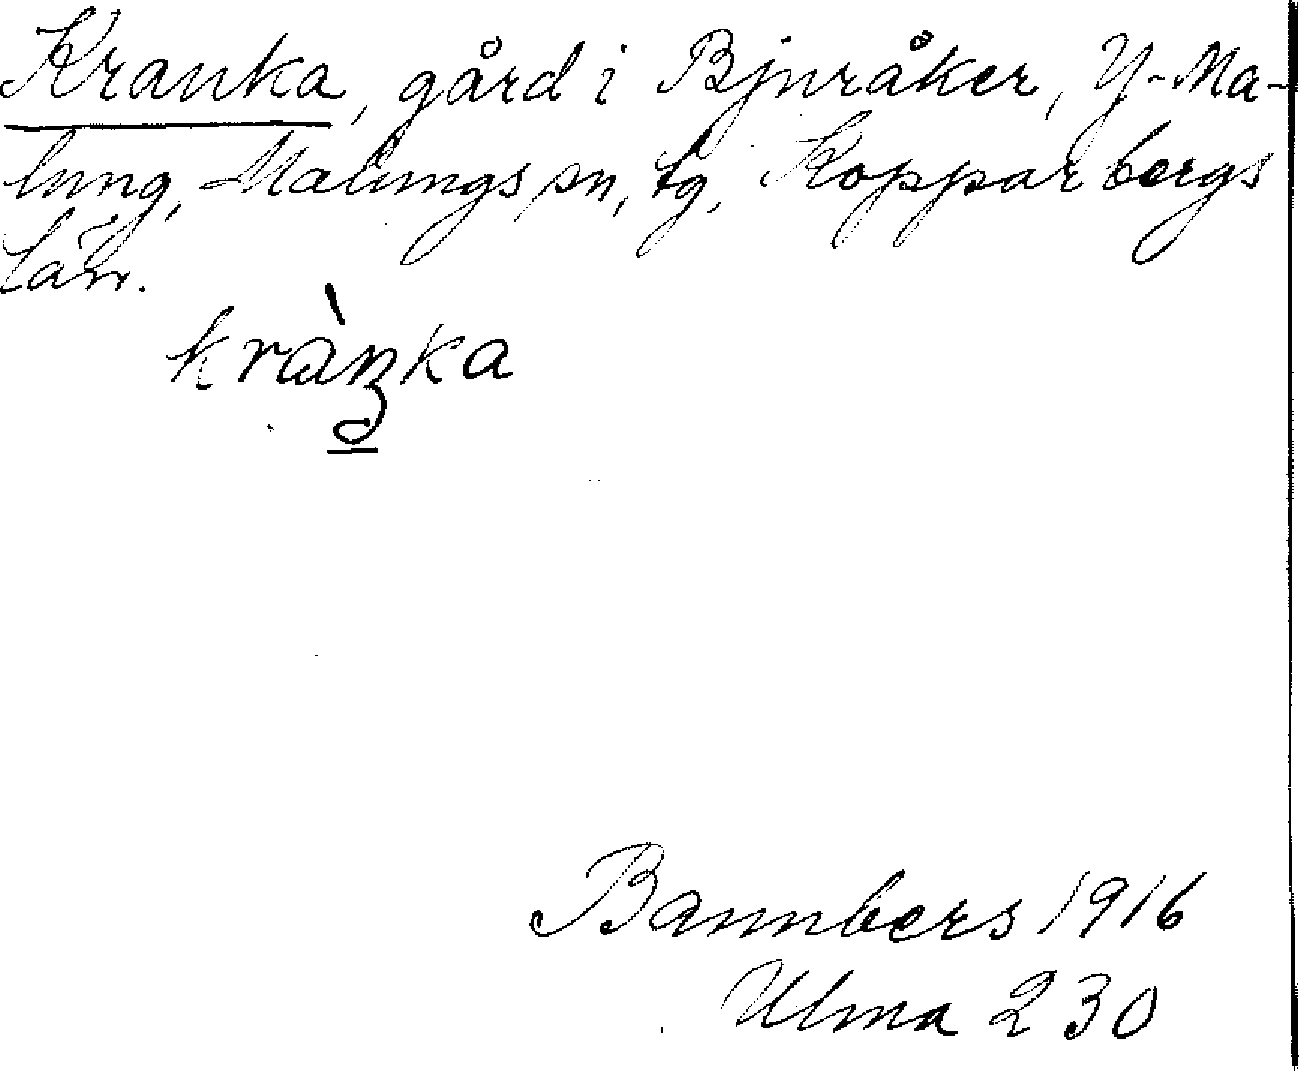 Kranka, gård i Bjuråker, Y-Ma-
lung, Malungs sn, tg, Kopparbergs
län.
kràŋka
Bannbers 1916
Ulma 230